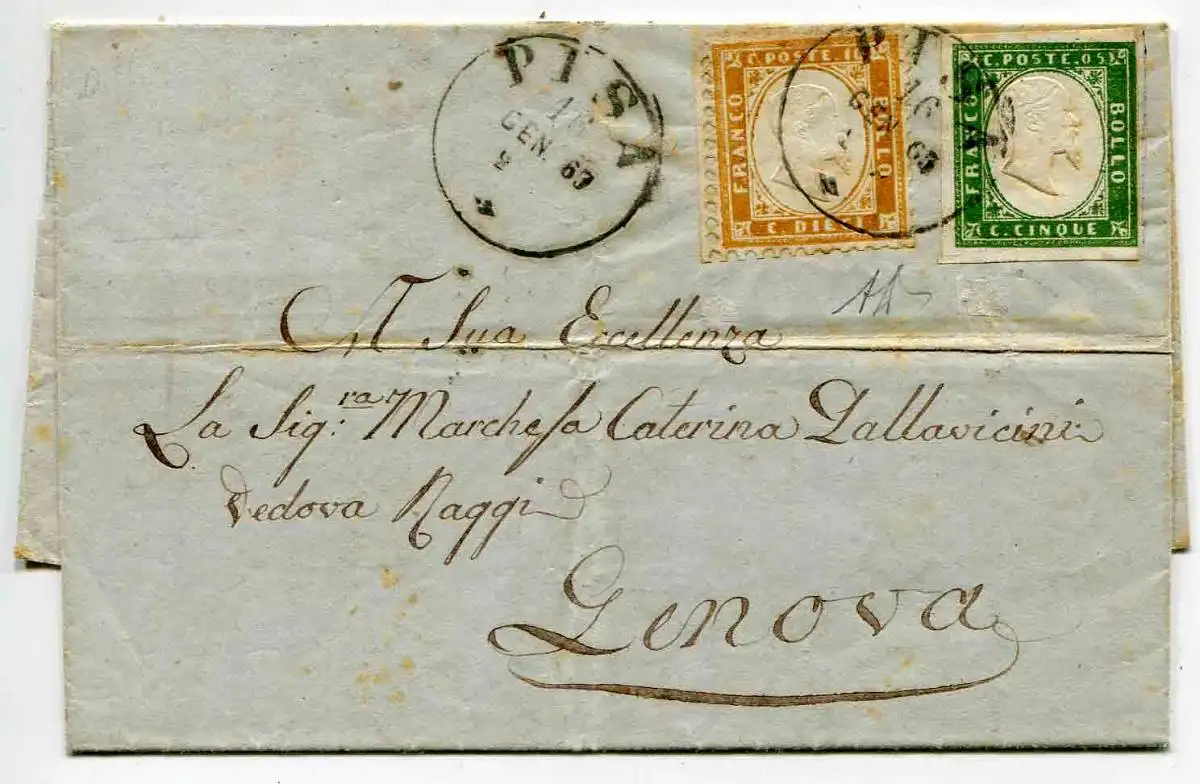 PISA
16
GEN. 63
2
M
C. POSTE. 10
FRANCO
BOLLO
C. DIECI
PISA
16
GEN. 63
M
C. POSTE. 05
FRANCO
BOLLO
C. CINQUE
A Sua Eccellenza
La Sig:ra Marchesa Caterina Pallavicini
Vedova Raggi
Genova